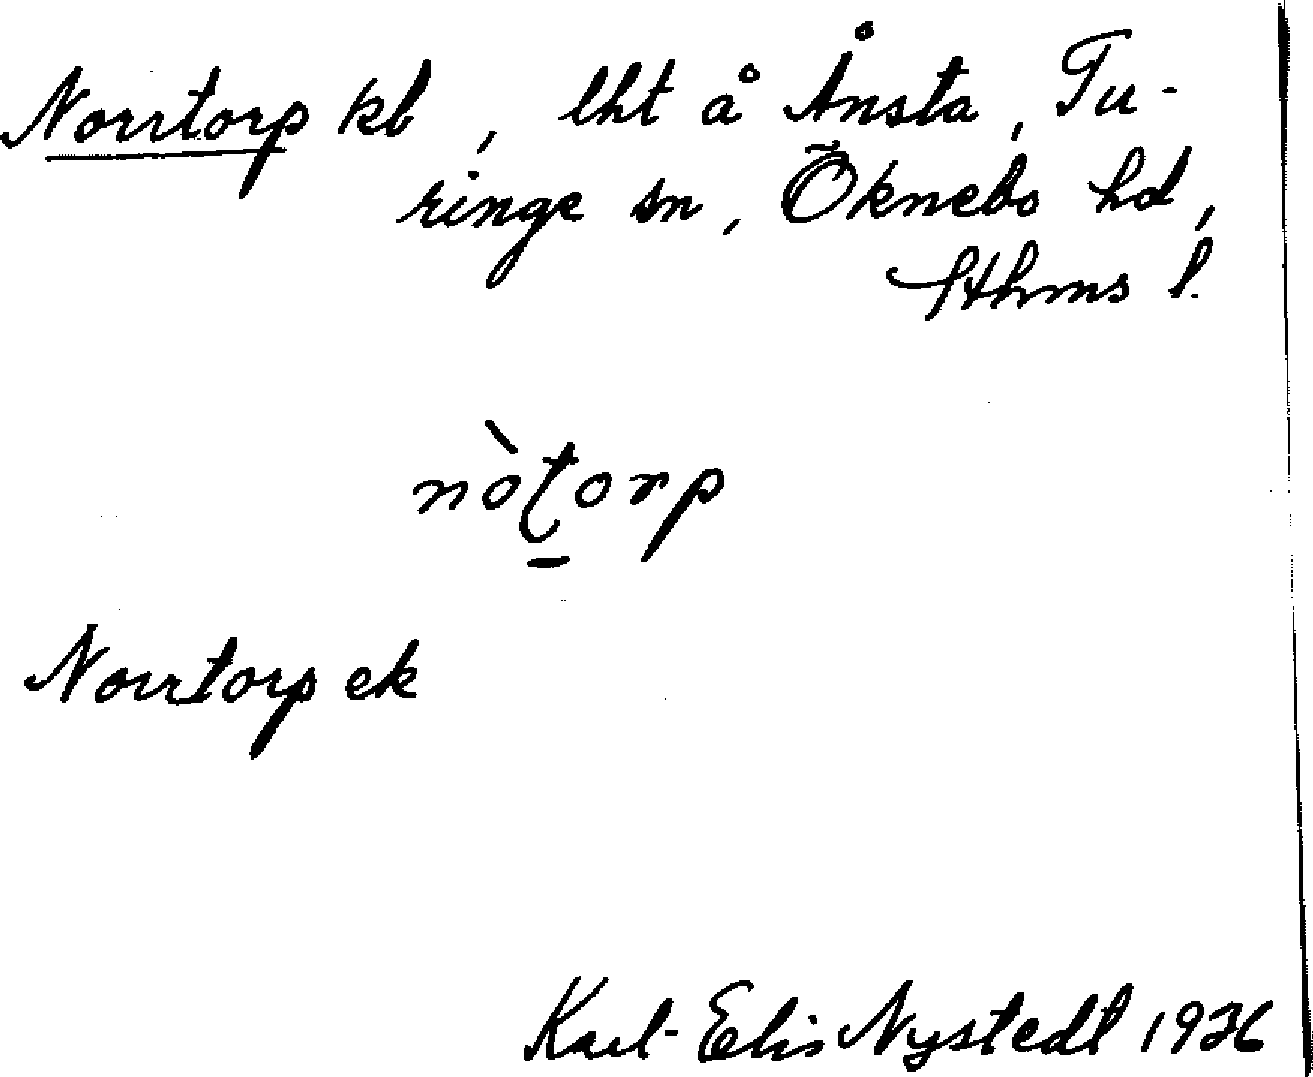 Norrtorp kb, lht å Ånsta, Tu-
ringe sn, Öknebo hd,
Sthms l.
nòt̠orp
Norrtorp ek
Karl-Elis Nystedt 1936